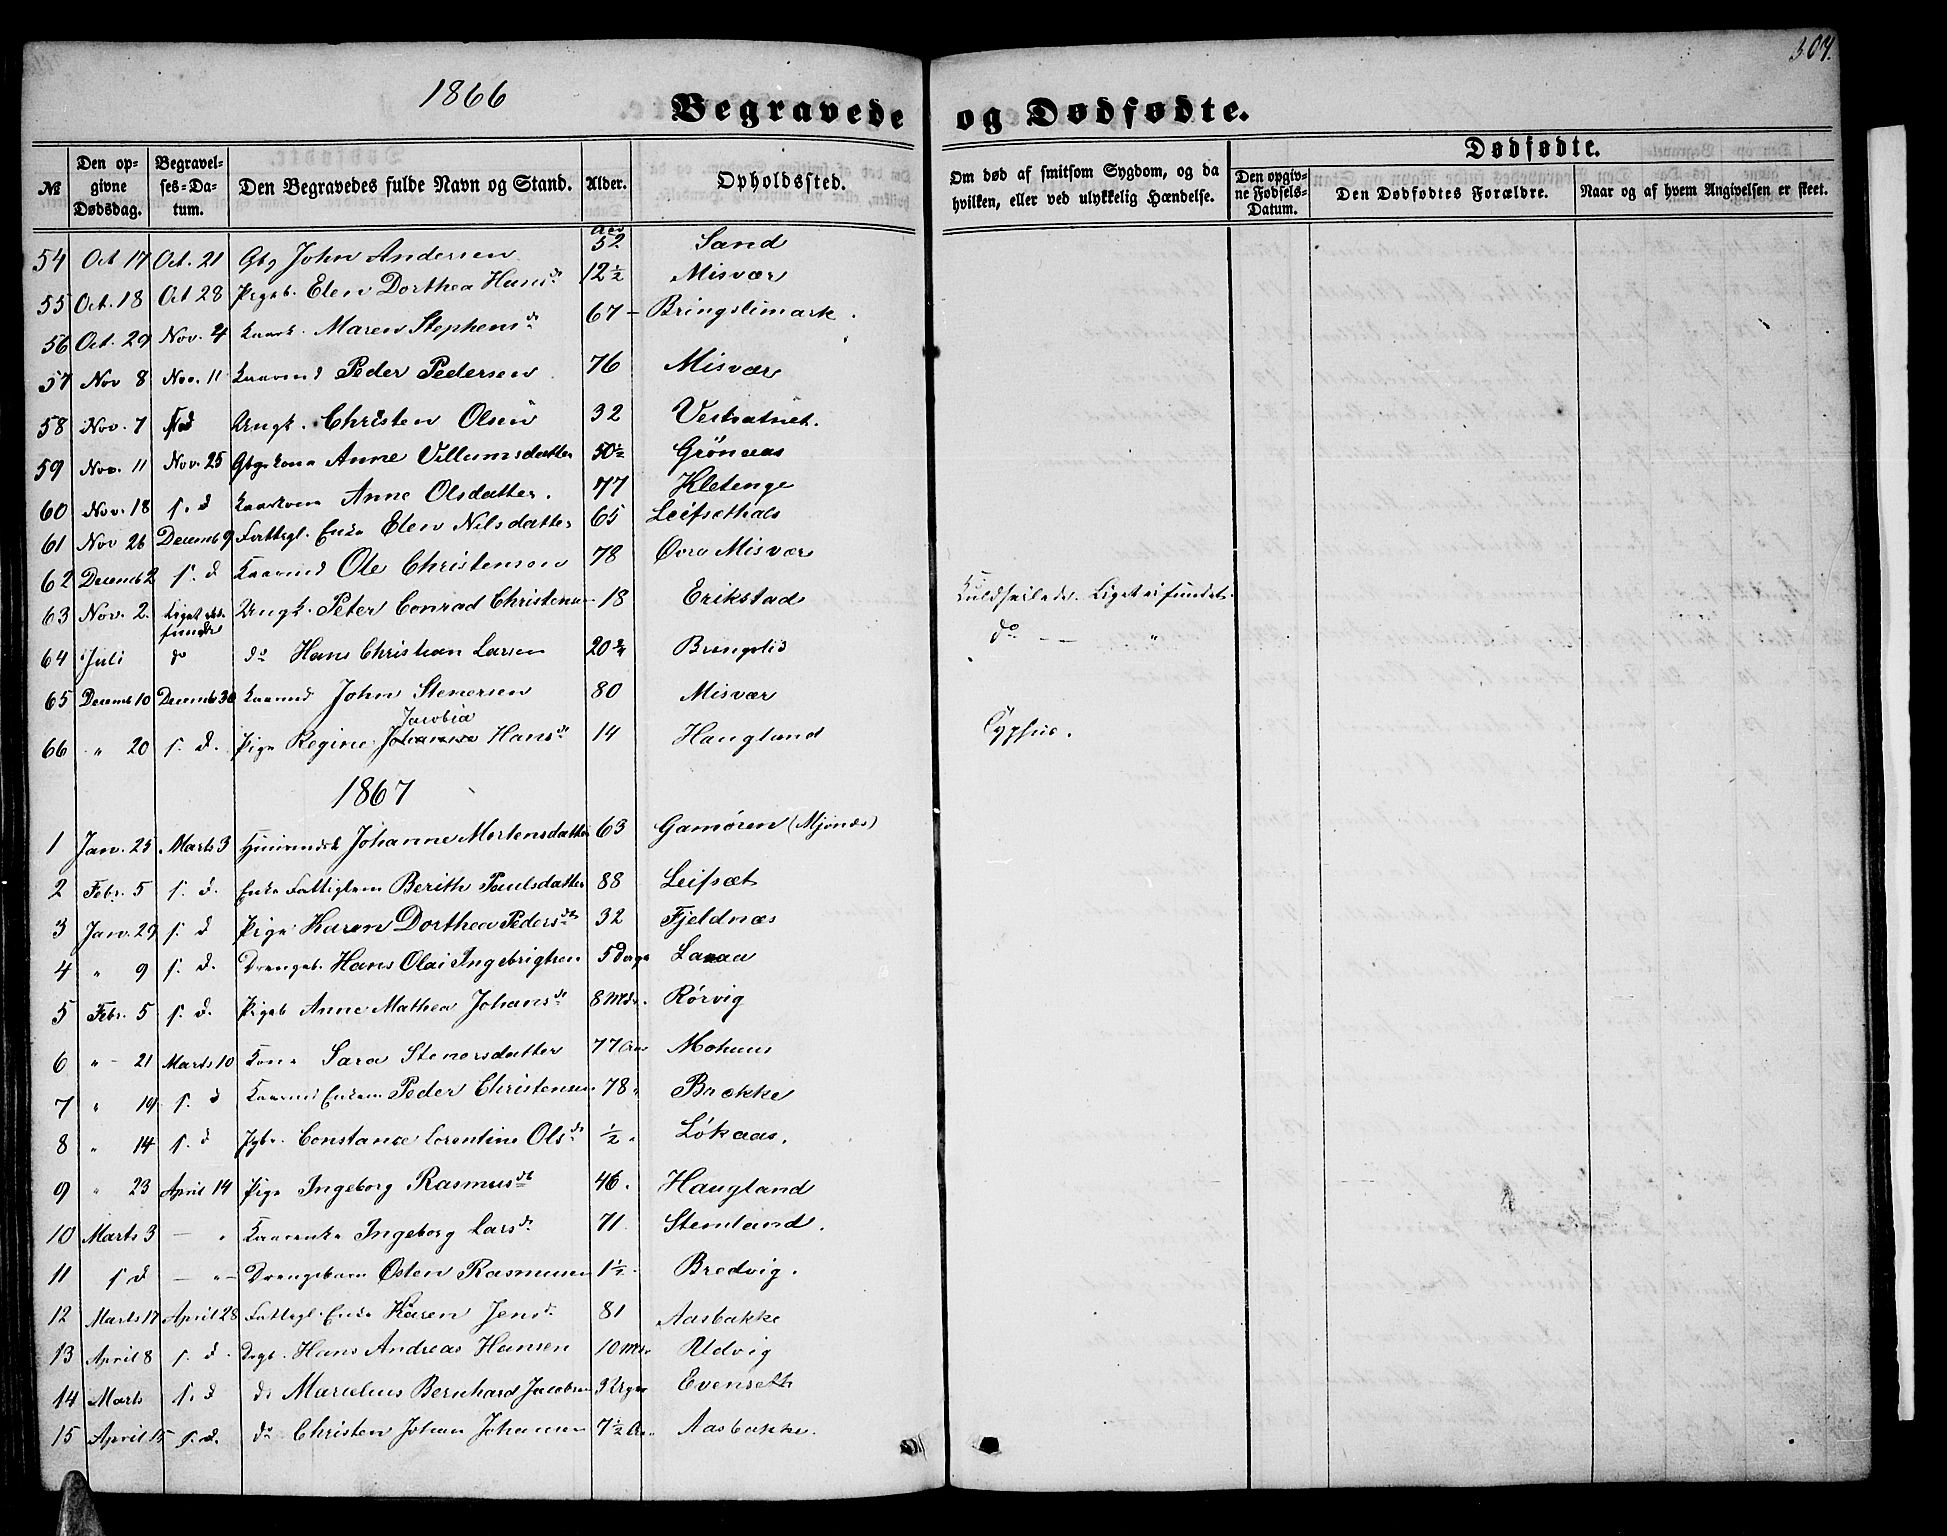 1866
Begravede og Dødfødte.
304.
№ Den opgivne Dødsdag. Begravelses-Datum. Den Begravedes fulde Navn og Stand. Alder. Opholdssted. Om død af smitsom Sygdom, og da hvilken, eller ved ulykkelig Hændelse. Dødfødte. Den opgivne Fødsels-Datum. Den Dødfødtes Forældre. Naar og af hvem Angivelsen er skeet.
54 Oct 17 Oct. 21 Gbg John Andersen Aar 52 Sand
55 Oct. 18 Oct 28 Pigeb. Elen Dorthea Hansd. 12½ Misvær
56 Oct. 29 Nov. 4 Maren Stephensd. 67 – Bringslimark.
57 Nov 8 Nov. 11 Kaarmd Peder Pedersen 76 Misvær
58 Nov. 7 Ungk. Christen Olsen 32 Vestvatnet.
59 Nov. 11 Nov. 25 Gbgrkone Anne Villumsdatter 50½ Grönaas
60 Nov. 18 s. d Kaarkone Anne Olsdatter. 77 Kletenge
61 Nov 26 Decemb 9 Fattigl. Enke Elen Nilsdatter 65 Leifsethals
62 Decemb 2 s. d Kaarmd Ole Christensen 78 Øvre Misvær
63 Nov. 2. Liget ei funden Ungk. Peter Conrad Christensen 18 Erikstad Kuldseilede. Liget ei fundet.
64 Juli do do Hans Christian Larsen 20¾ Bringslid do — — "
65 Decemb 10 Decemb 30 Kaarmd John Stenersen 80 Misvær
66 " 20 s. d. Pige Regine Johanna Jacobia Hansd. 14 Haugland Typhus.
1867
1 Jan. 25 Marts 3 Johanne Mortensdatter 63 Gamøren (Mjønes)
2 Febr. 5 s. d. Enke Fattiglem Berith Paulsdatter 88 Leifset
3 Jan. 29 s. d Pige Karen Dorthea Pedersd. 32 Fjeldnæs
4 " 9 s. d. Drengeb. Hans Olai Ingebrigtsen 5 Dage
5 Febr. 5 s. d. Pigeb Anne Mathea Johansd. 8 Mdr. Rörvig
6 " – 21 Marts 10 Kone Sara Stenersdatter 77 Aar Mohuus
7 " 19 s. d Kaarmd Enkem Peder Christensen 78 " Brekke
8 " 14 s. d Pgb. Constance Lorentine Olsd. ½ " Lökaas.
9 " 23 April 14 Pige Ingeborg Rasmusd. 46. Haugland
10 Marts 3 — " Kaarenke Ingeborg Larsd. 71 Stemland.
11 s d — " – Drengebarn Østen Rasmusen 1½ Bredvig.
12 Marts 17 April 28 Fattigl. Enke Karen Jensd. 81 Aasbakke
13 April 8 s. d. Drgb. Hans Andreas Hansen 10 Mdr Udvig
14 Marts s. d do Marcelius Bernhard Jacobsen 3 Uger Evenseth
15 April 15 s. d. do Christen Johan Johansen 7½ Aar Aasbakke.